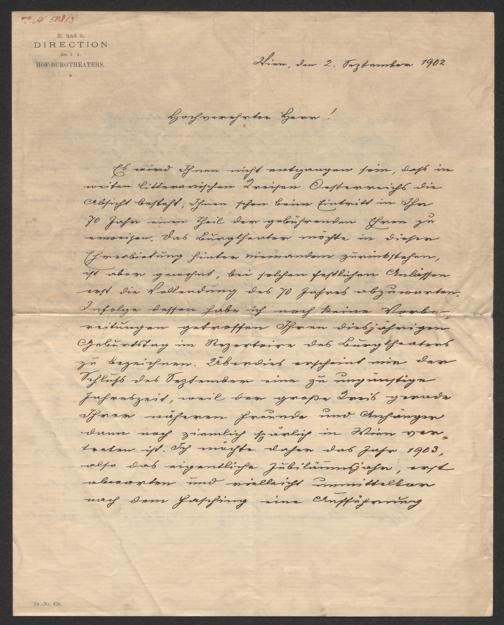 K. und k.
DIRECTION
des k. k.
HOF-BURGTHEATERS.
Wien, den 2. September 1902
Hochverehrter Herr!
Es wird Ihnen nicht entgangen sein, daß in
weiten litterarischen Kreisen Oesterreichs die
Absicht besteht, Ihnen schon beim Eintritt in Ihr
70 Jahr einen Theil der gebührenden Ehren zu
erweisen. Das Burgtheater möchte in dieser
Ehrerbietung hinter niemandem zurückstehen,
ist aber gewohnt, bei solchen festlichen Anlässen
erst die Vollendung des 70 Jahres abzuwarten.
Infolge dessen habe ich noch keine Vorbe-
reitungen getroffen Ihren diesjährigen
Geburtstag im Repertoire des Burgtheaters
zu bezeichnen. Überdies erscheint mir der
Schluß des September eine zu ungünstige
Jahreszeit, weil der große Kreis gerade
Ihrer näheren Freunde und Anhänger
dann noch ziemlich spärlich in Wien ver-
treten ist. Ich möchte daher das Jahr 1903,
also das eigentliche Jubiläumsjahr, erst
abwarten und vielleicht unmittelbar
nach dem Fasching eine Aufführung